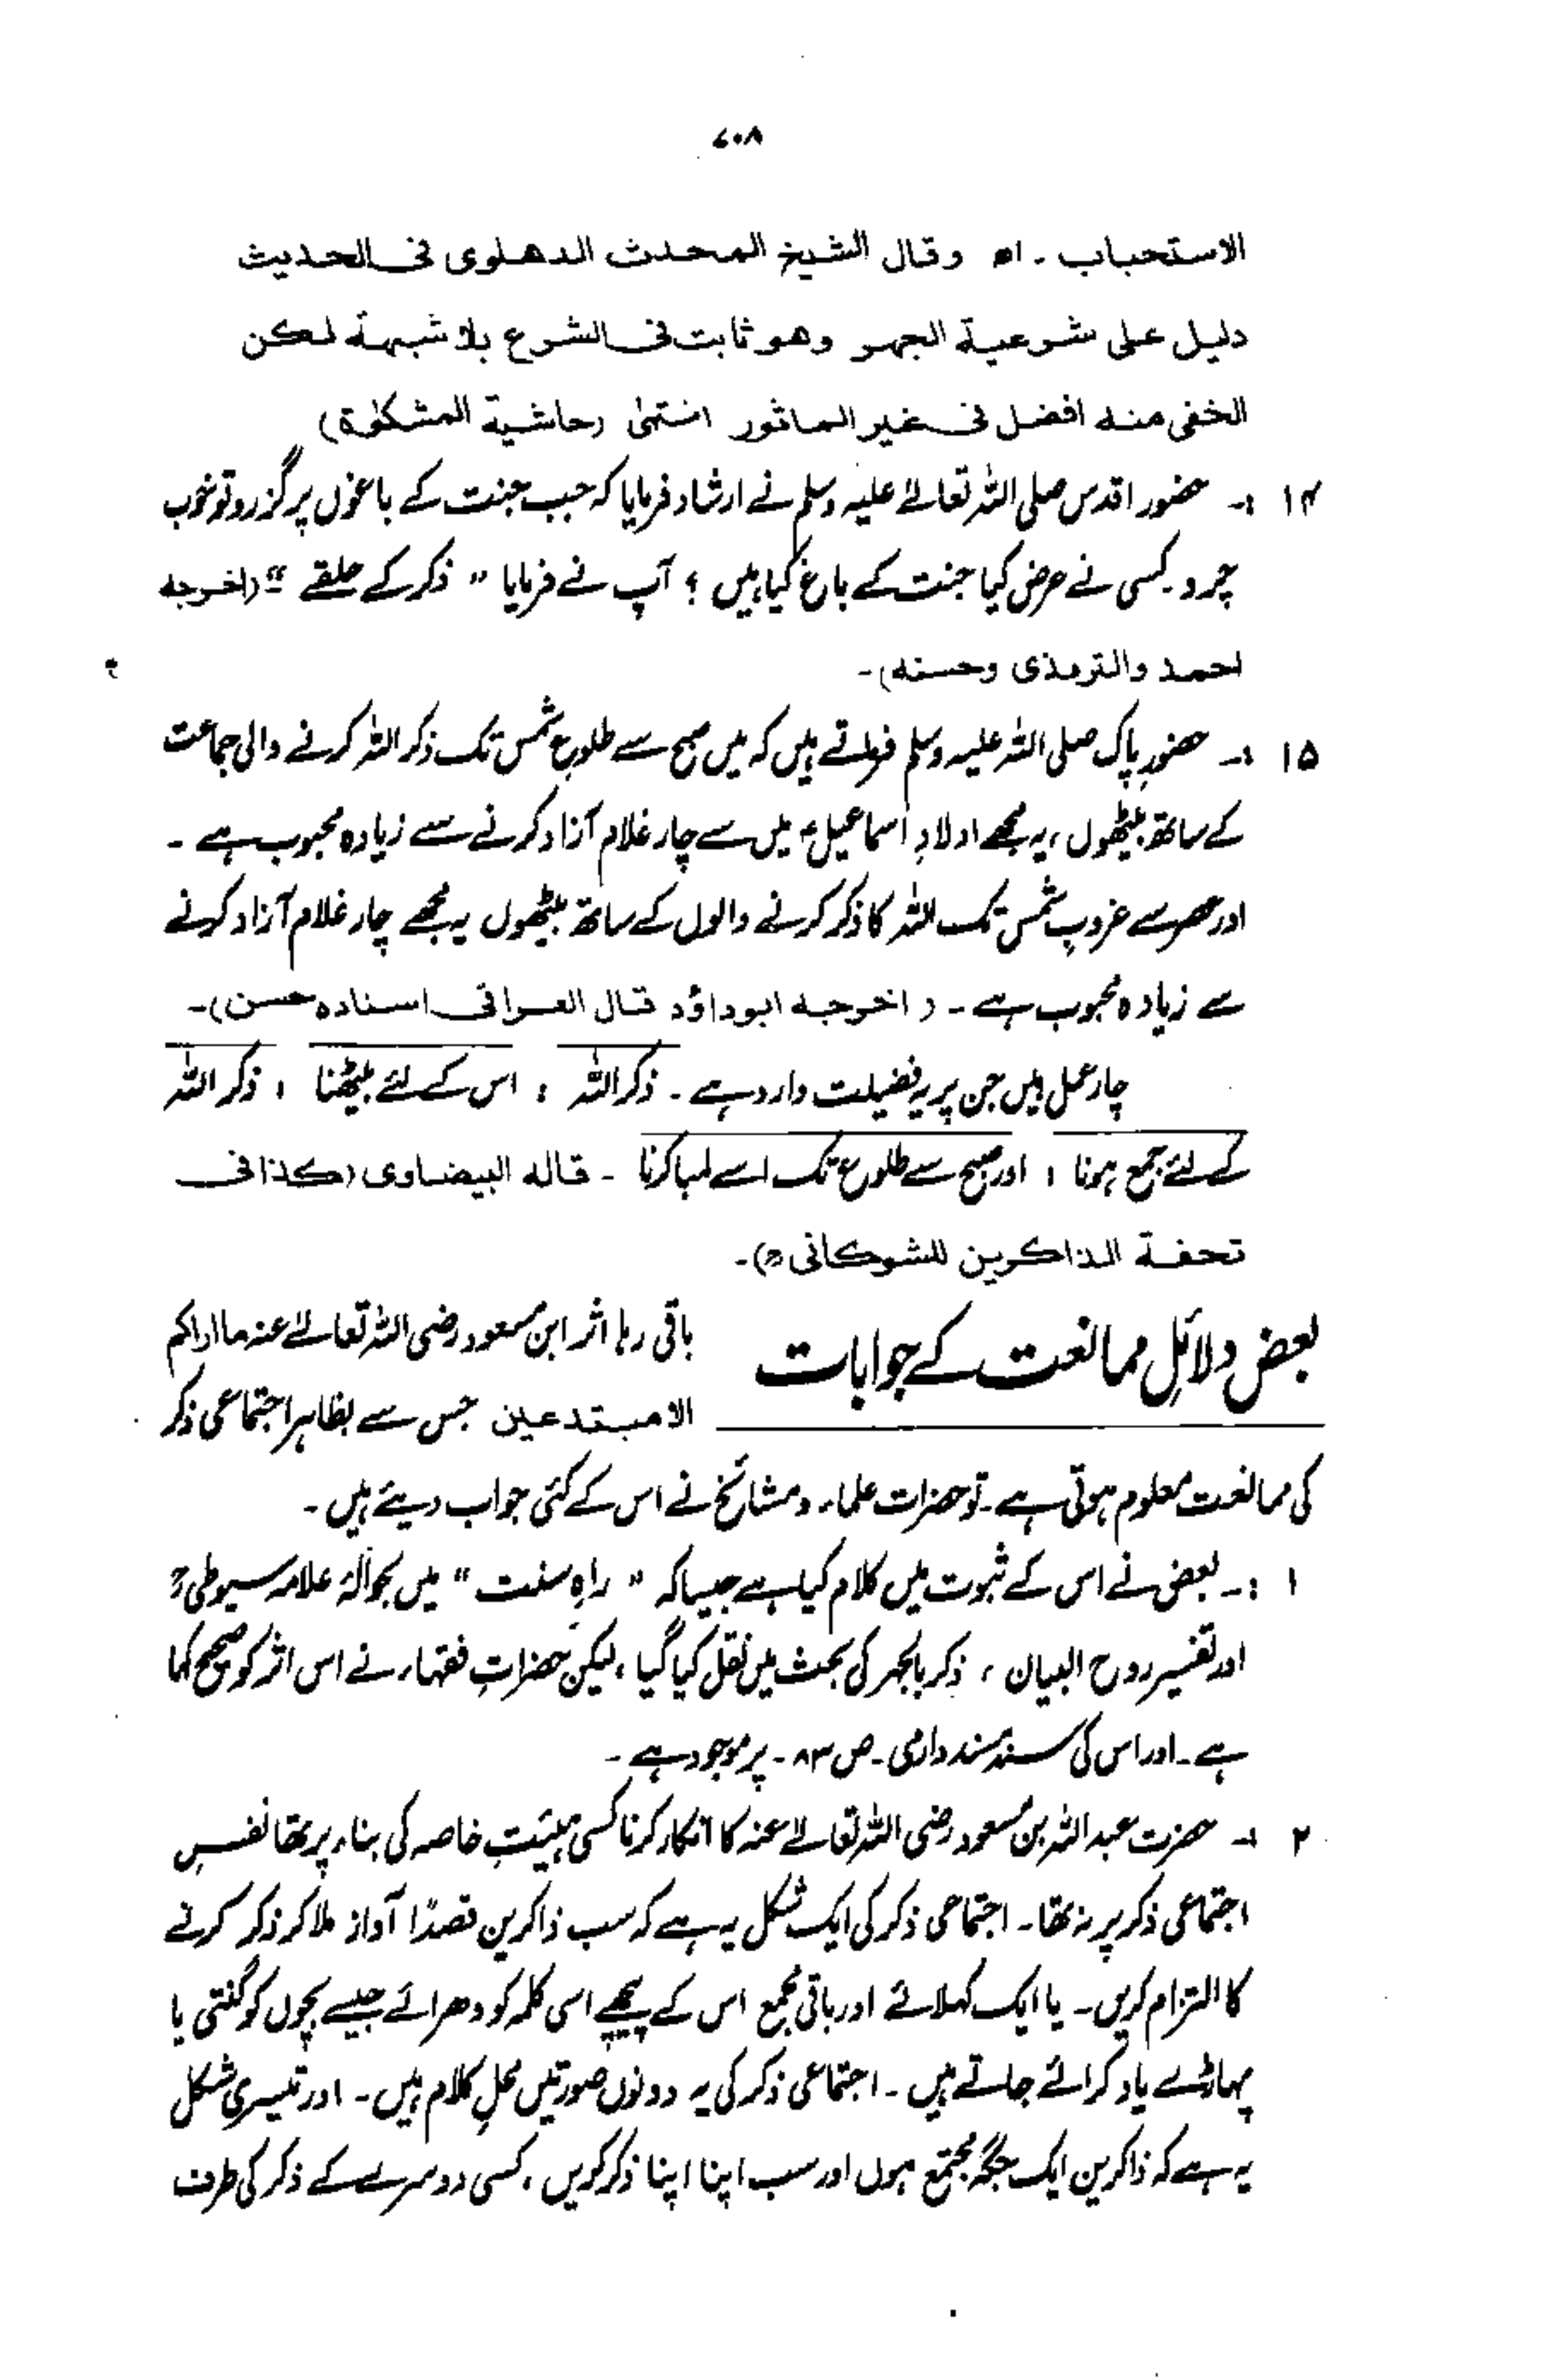 ۷۰۸
الاستحباب ۔ اھ وقال الشیخ المحدث الدھلوی فی الحدیث
دلیل علی شرعیة الجھر وھو ثابت فی الشرع بلا شبھة لکن
الخفی منه افضل فی غیر الماثور انتھٰی (حاشیة المشکوٰة)
۱۴ :۔ حضور اقدس صلی اللہ تعالےٰ علیہ وسلم نے ارشاد فرمایا کہ جب جنت کے باغوں پر گزرو تو خوب
چرو۔ کسی نے عرض کیا جنت کے باغ کیا ہیں ؟ آپ نے فرمایا " ذکر کے حلقے "۔ (اخرجه
احمد والترمذی وحسنه)۔
۱۵ :۔ حضورِ پاک صلی اللہ علیہ وسلم فرماتے ہیں کہ میں صبح سے طلوعِ شمس تک ذکر اللہ کرنے والی جماعت
کے ساتھ بیٹھوں ، یہ مجھے اولادِ اسماعیلؑ میں سے چار غلام آزاد کرنے سے زیادہ محبوب ہے ۔
اور عصر سے غروبِ شمس تک اللہ کا ذکر کرنے والوں کے ساتھ بیٹھوں یہ مجھے چار غلام آزاد کرنے
سے زیادہ محبوب ہے ۔ (اخرجه ابوداؤد قال العراقی اسناده حسن)۔
چار عمل ہیں جن پر یہ فضیلت وارد ہے ۔ ذکر اللہ ، اس کے لئے بیٹھنا ، ذکر اللہ
کے لئے جمع ہونا ، اور صبح سے طلوع تک اسے لمبا کرنا ۔ قاله البیضاوی (کذا فی
تحفة الذاکرین للشوکانیؒ)۔
بعض دلائلِ ممانعت کے جوابات
باقی رہا اثر ابن مسعود رضی اللہ تعالےٰ عنہ ما اراکم
الا مبتدعین جس سے بظاہر اجتماعی ذکر
کی ممانعت معلوم ہوتی ہے ۔ تو حضرات علماء و مشائخ نے اس کے کئی جواب دیئے ہیں ۔
۱ :۔ بعض نے اس کے ثبوت میں کلام کیا ہے جیسا کہ " راہِ سنت " میں بحوالہٗ علامہ سیوطیؒ
اور تفسیر روح البیان ، ذکر بالجہر کی بحث میں نقل کیا گیا ، لیکن حضراتِ فقہاء نے اس اثر کو صحیح کہا
ہے ۔ اور اس کی سند مسند دارمی ۔ ص ۸۳ ۔ پر موجود ہے ۔
۲ :۔ حضرت عبد اللہ بن مسعود رضی اللہ تعالےٰ عنہ کا انکار کرنا کسی ہیئتِ خاصہ کی بناء پر تھا نفسِ
اجتماعی ذکر پر نہ تھا ۔ اجتماعی ذکر کی ایک شکل یہ ہے کہ سب ذاکرین قصدًا آواز ملا کر ذکر کرنے
کا التزام کریں ۔ یا ایک کہلائے اور باقی مجمع اس کے پیچھے اسی کلمہ کو دھرائے جیسے بچوں کو گنتی یا
پہاڑے یاد کرائے جاتے ہیں ۔ اجتماعی ذکر کی یہ دونوں صورتیں محلِ کلام ہیں ۔ اور تیسری شکل
یہ ہے کہ ذاکرین ایک جگہ مجتمع ہوں اور سب اپنا اپنا ذکر کریں ، کسی دوسرے کے ذکر کی طرف